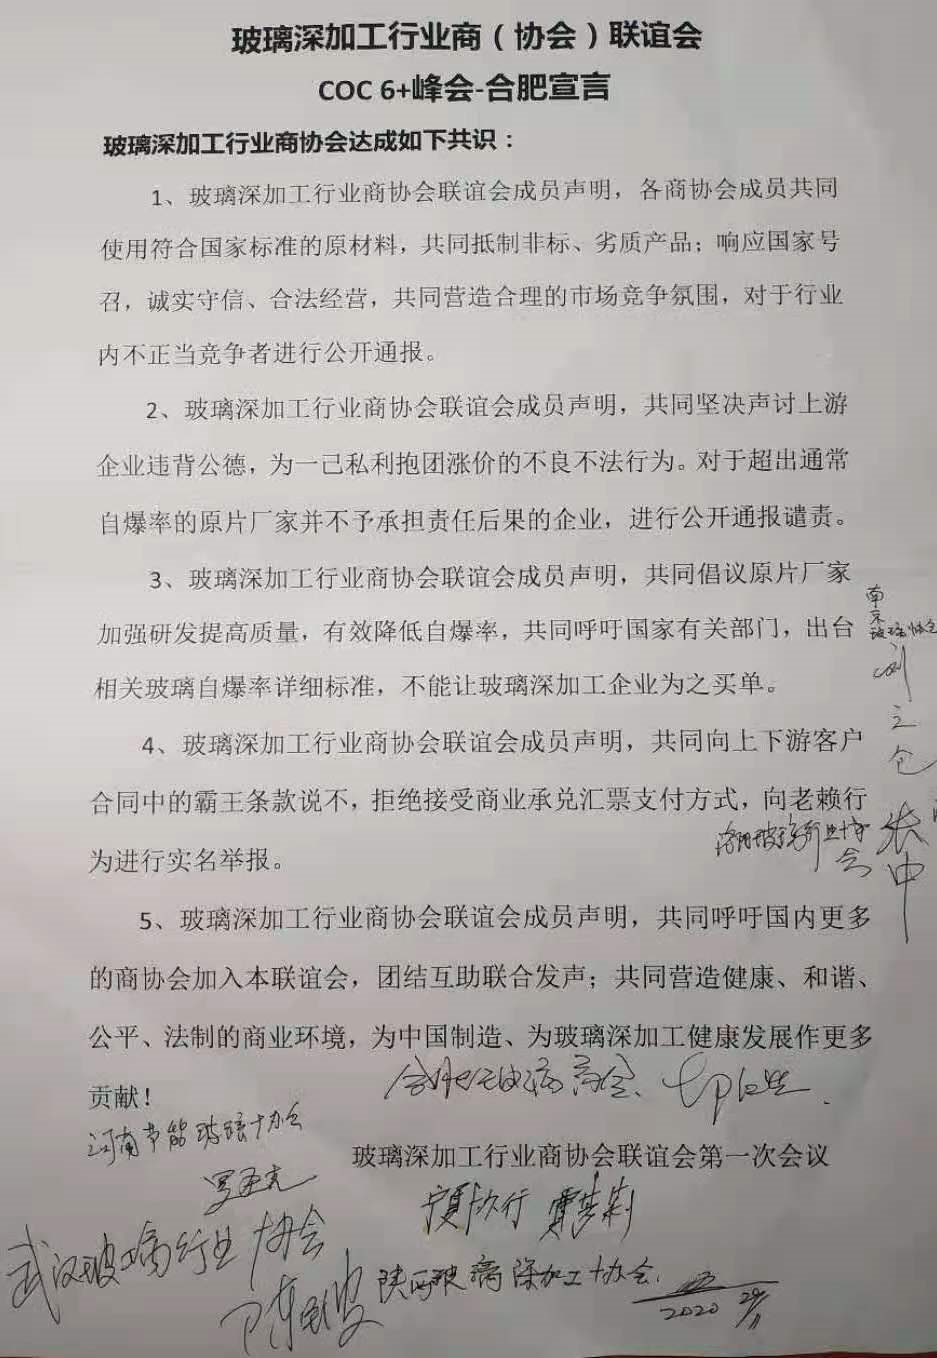 玻璃深加工行业商（协会）联谊会
COC 6+峰会-合肥宣言
玻璃深加工行业商协会达成如下共识：
1、玻璃深加工行业商协会联谊会成员声明，各商协会成员共同
使用符合国家标准的原材料，共同抵制非标、劣质产品；响应国家号
召，诚实守信、合法经营，共同营造合理的市场竞争氛围，对于行业
内不正当竞争者进行公开通报。
2、玻璃深加工行业商协会联谊会成员声明，共同坚决声讨上游
企业违背公德，为一己私利抱团涨价的不良不法行为。对于超出通常
自爆率的原片厂家并不予承担责任后果的企业，进行公开通报谴责。
3、玻璃深加工行业商协会联谊会成员声明，共同倡议原片厂家
加强研发提高质量，有效降低自爆率，共同呼吁国家有关部门，出台
相关玻璃自爆率详细标准，不能让玻璃深加工企业为之买单。
南京玻璃协会
刘立仓
4、玻璃深加工行业商协会联谊会成员声明，共同向上下游客户
合同中的霸王条款说不，拒绝接受商业承兑汇票支付方式，向老赖行
为进行实名举报。
洛阳玻璃行业协会
5、玻璃深加工行业商协会联谊会成员声明，共同呼吁国内更多
的商协会加入本联谊会，团结互助联合发声；共同营造健康、和谐、
公平、法制的商业环境，为中国制造、为玻璃深加工健康发展作更多
贡献！
合肥玻璃商会
河南节能玻璃协会
玻璃深加工行业商协会联谊会第一次会议
武汉玻璃行业协会
陕西玻璃深加工协会
2020 29/11